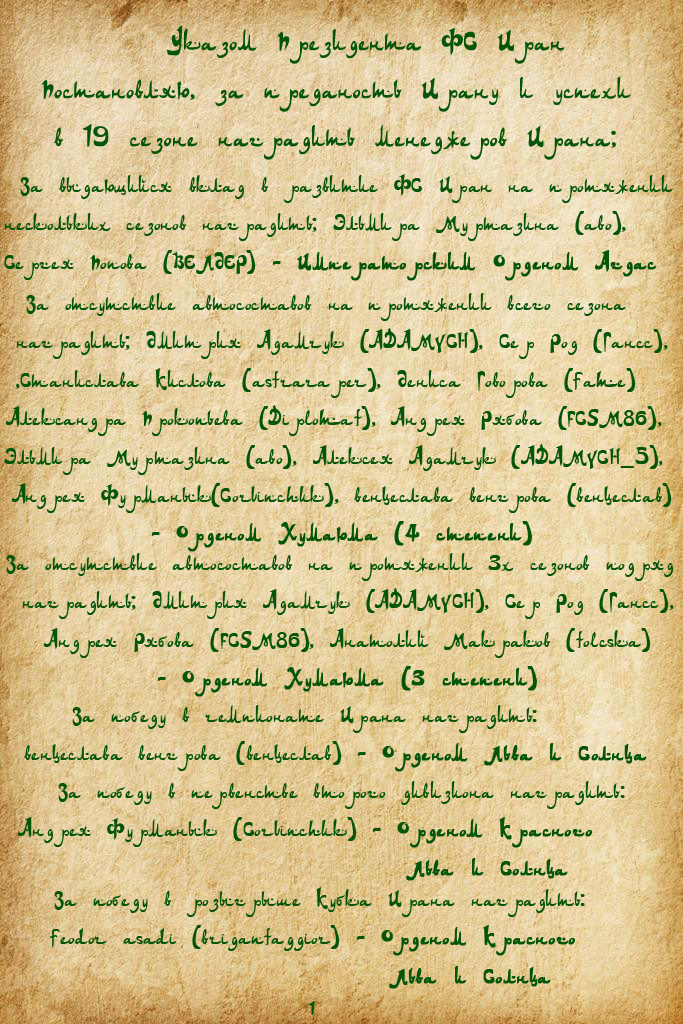 Указом Президента ФС Иран
Постановляю, за преданость Ирану и успехи
в 19 сезоне наградить Менеджеров Ирана;
За выдающийся вклад в развитие ФС Иран на протяжении
нескольких сезонов наградить; Эльмира Муртазина (аво),
Сергея Попова (ВЕЛДЕР) - Императорским Орденом Агдас
За отсутствие автосоставов на протяжении всего сезона
наградить; Дмитрия Адамчук (ADAMYCH), Сер Род (Гансс),
,Станислава Кислова (astraraper), Дениса Говорова (Fame)
Александра Прокопьева (Diplomat), Андрея Рябова (FCSM86),
Эльмира Муртазина (аво), Алексея Адамчук (ADAMYCH_5),
Андрея Фурманык(Gorbinchuk), венцеслава венгрова (венцеслав)
- Орденом Хумаюма (4 степени)
За отсутствие автосоставов на протяжении 3х сезонов подряд
наградить; Дмитрия Адамчук (ADAMYCH), Сер Род (Гансс),
Андрея Рябова (FCSM86), Анатолий Макраков (tolcska)
- Орденом Хумаюма (3 степени)
За победу в чемпионате Ирана наградить:
венцеслава венгрова (венцеслав) - Орденом Льва и Солнца
За победу в первенстве второго дивизиона наградить:
Андрея Фурманык (Gorbinchuk) - Орденом Красного
Льва и Солнца
За победу в розыгрыше Кубка Ирана наградить:
feodor asadi (brigantaggior) - Орденом Красного
Льва и Солнца
1